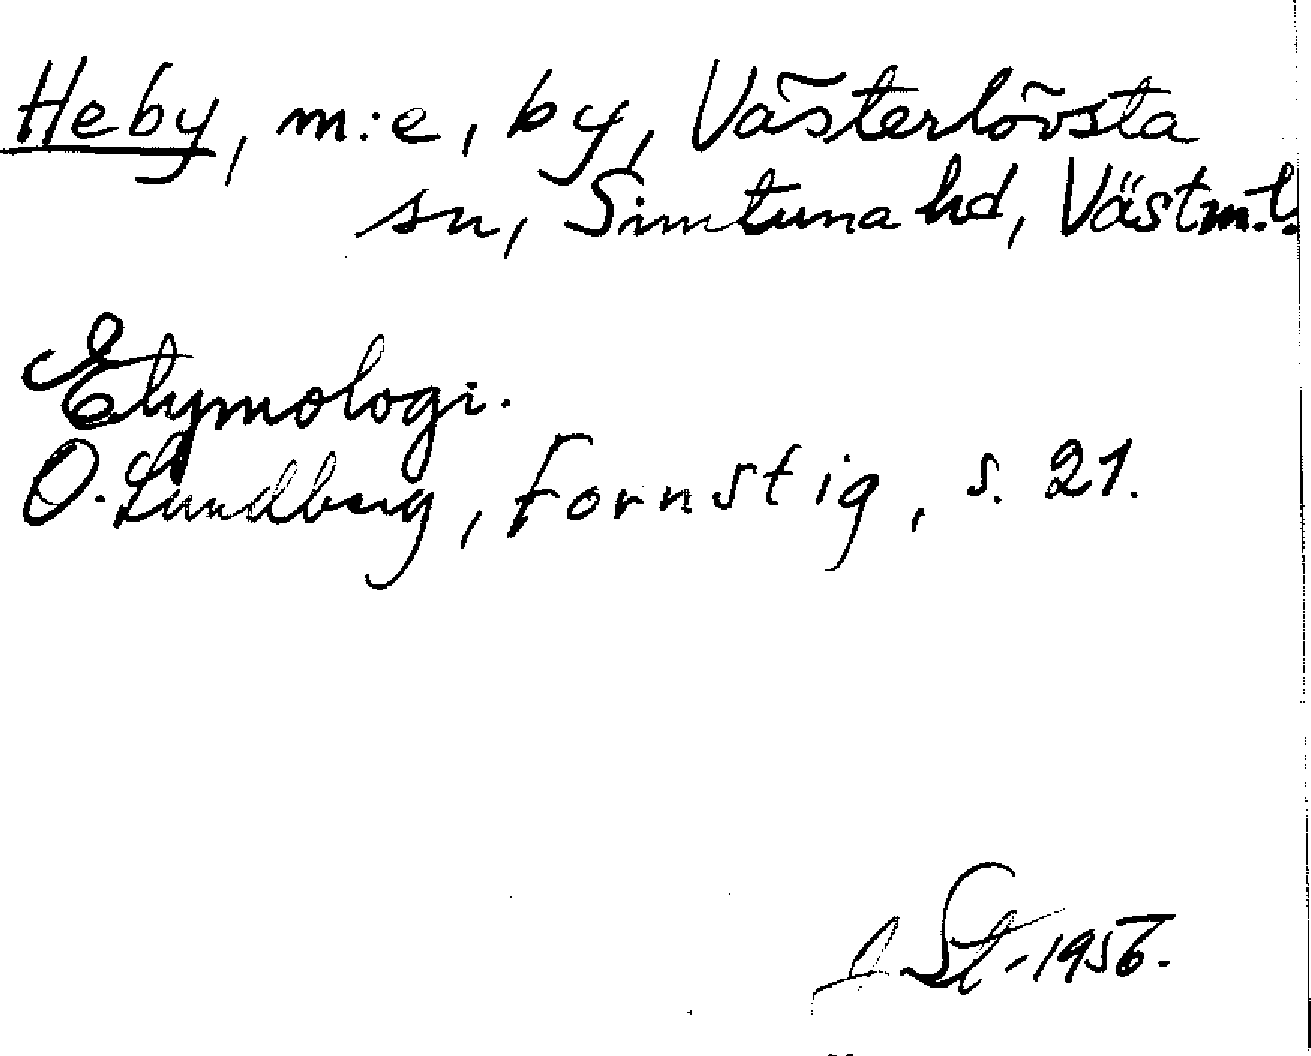 Heby, m:e, by, Västerlövsta
sn, Simtuna hd, Västm.l.
Etymologi.
O. Lundberg, Fornstig, s. 21.
St. 1956.